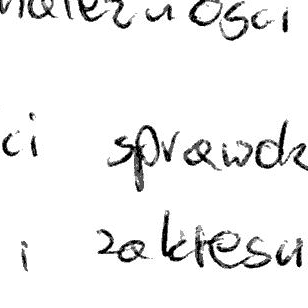 należności
ci sprawdz
i zakresu